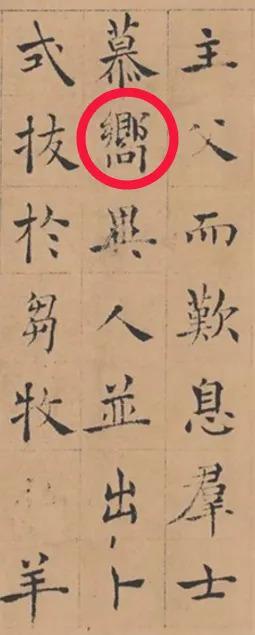 主父而歎息羣士
慕嚮異人並出卜
式拔於芻牧羊